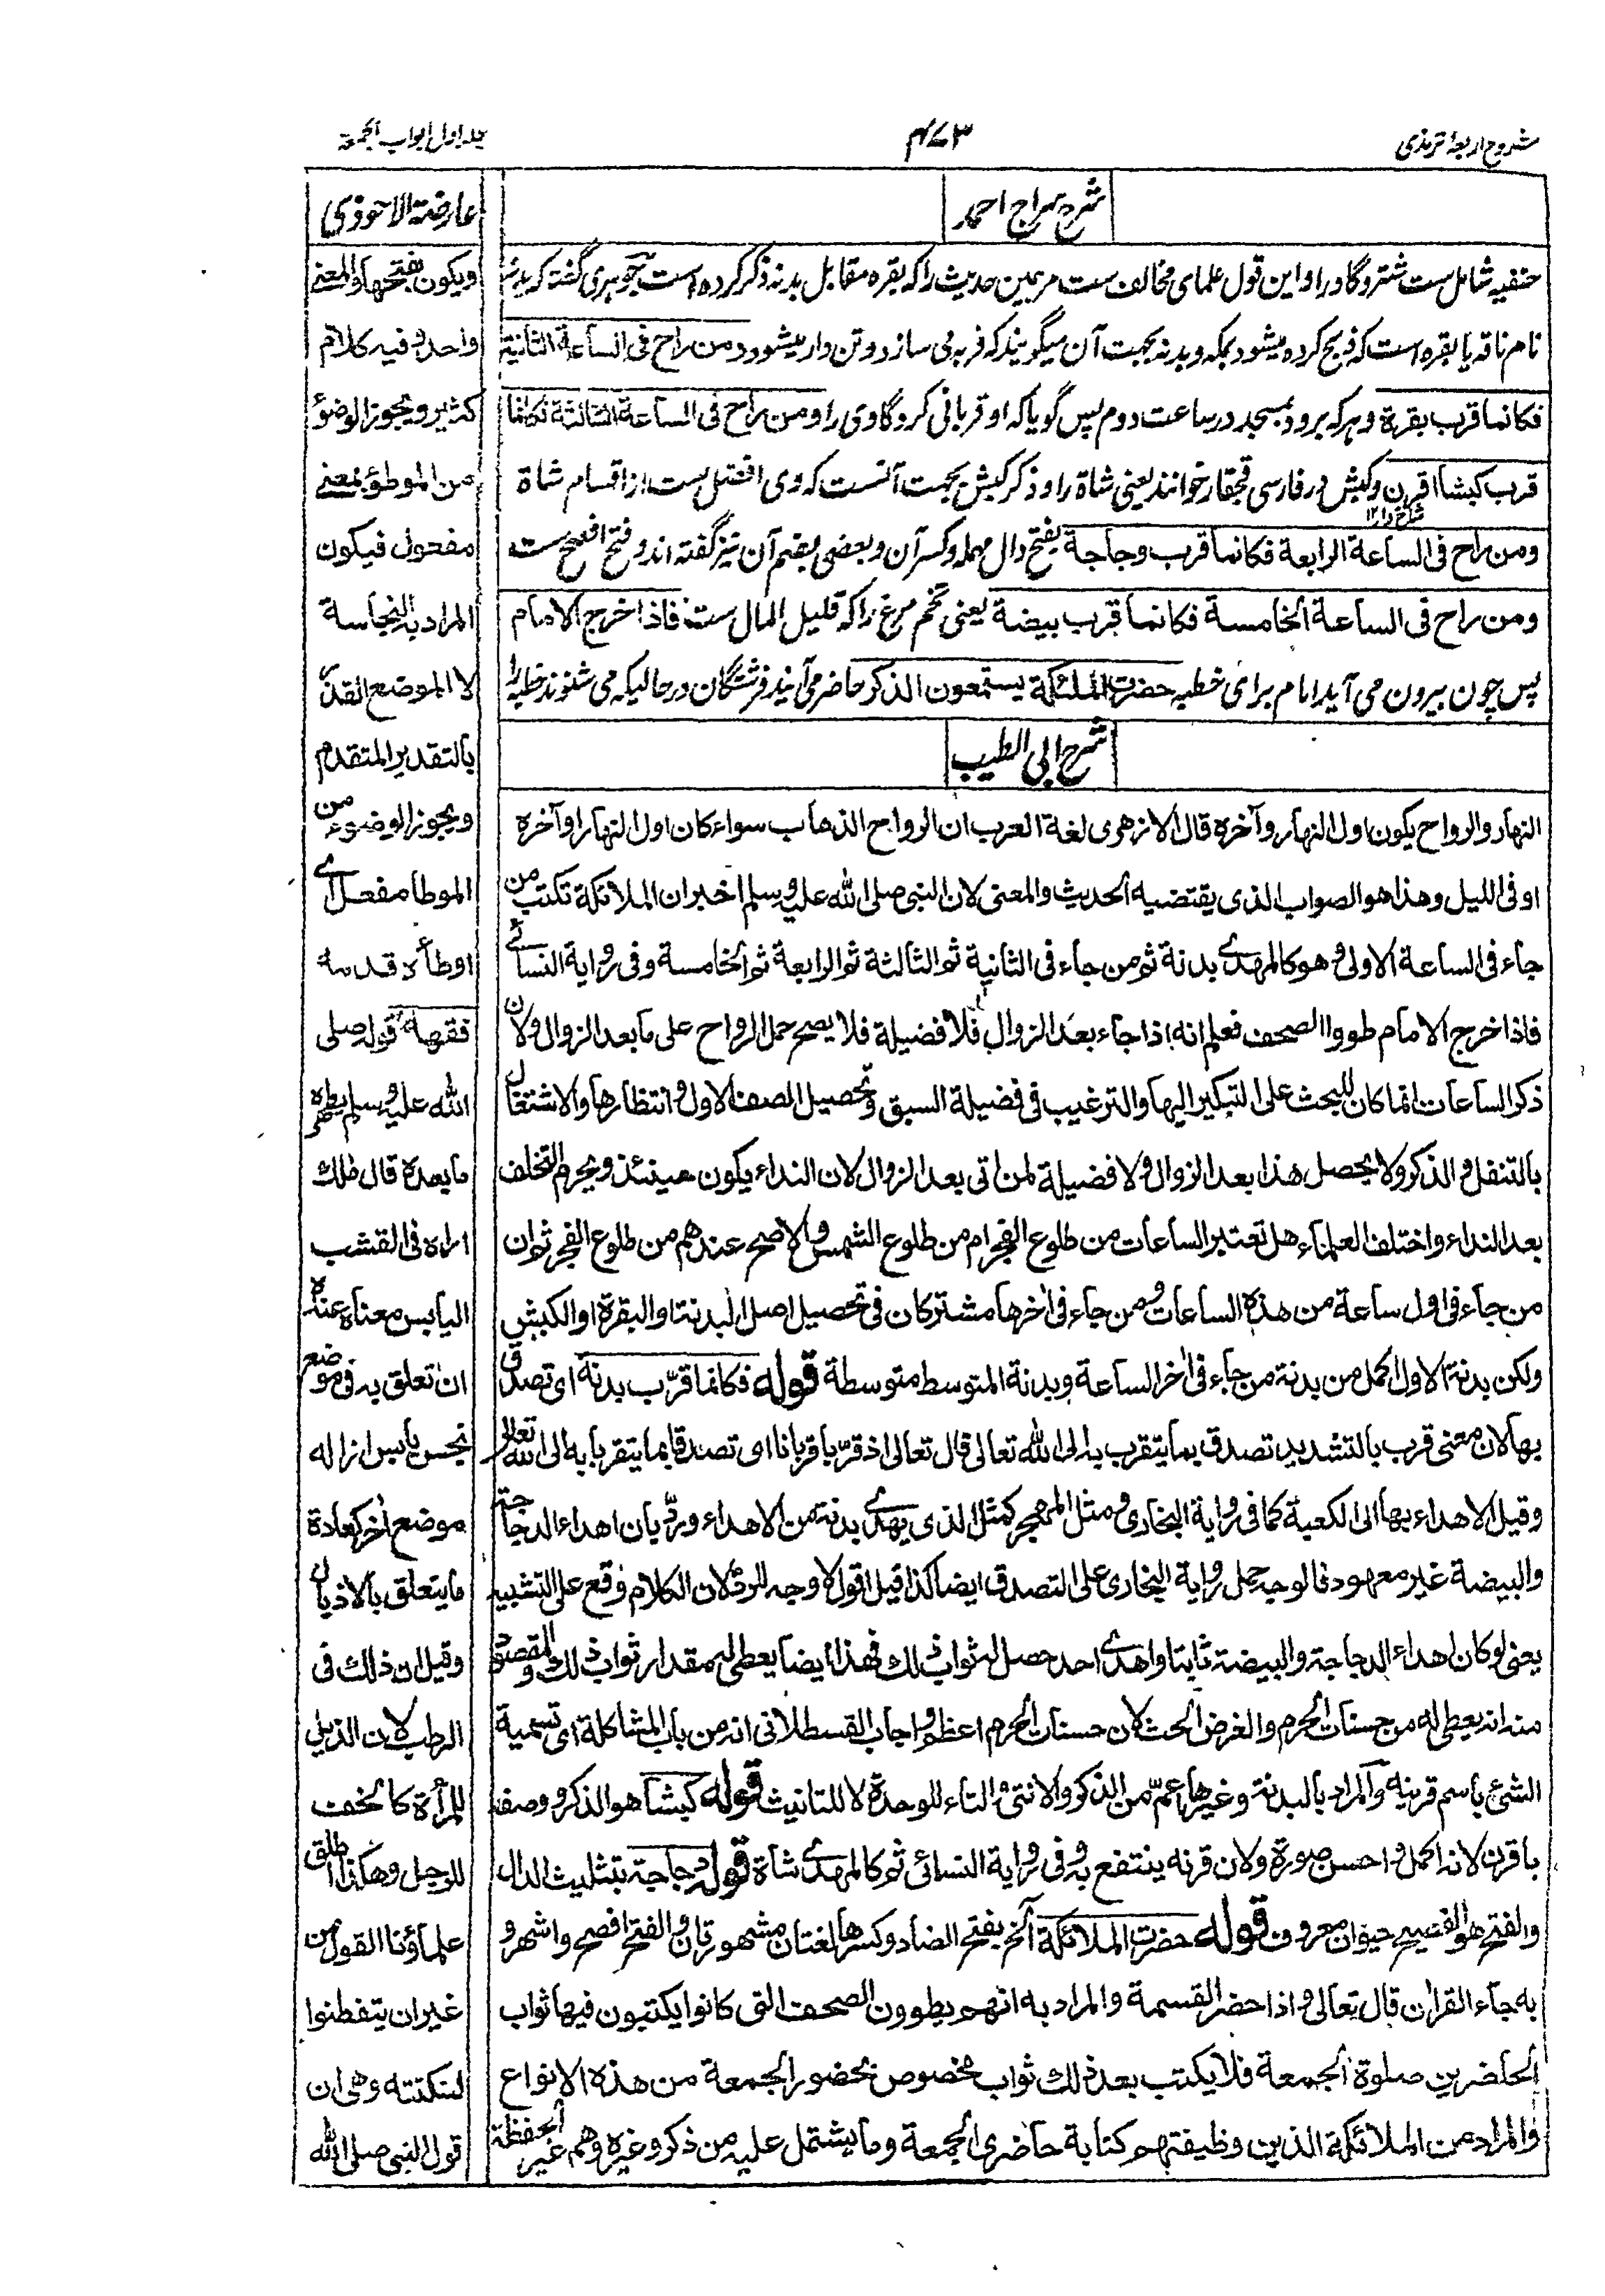 شروح اربعۂ ترمذی
۴۷۳
جلد اول ابواب الجمعة
شرح سراج احمد
حنفیه شامل ست شتر و گاو را و این قول علمای مخالف ست مر همین حدیث را که بقره مقابل بدنه ذکر کرده است جوهری گفته که بدنه
نام ناقه یا بقره است که ذبح کرده میشود بمکه و بدنه بجهت آن میگویند که فربه می سازد و تن وار میشود ومن راح فی الساعة الثانیة
فکانما قرب بقرة و هرکه برود بمسجد در ساعت دوم پس گویا که او قربانی کرد گاوی را ومن راح فی الساعة الثالثة فکانما
قرب کبشا اقرن و کبش در فارسی قچقار خوانند یعنی شاة را و ذکر کبش بجهت آنست که وی افضل ست از اقسام شاة
شاخ دار ۱۲
ومن راح فی الساعة الرابعة فکانما قرب دجاجة بفتح دال مهمله و کسر آن و بعضی بضم آن نیز گفته اند و فتح افصح ست
ومن راح فی الساعة الخامسة فکانما قرب بیضة یعنی تخم مرغ را که قلیل المال ست فاذا خرج الامام
پس چون بیرون می آید امام برای خطبه حضرت الملئکة یستمعون الذکر حاضر می آیند فرشتگان در حالیکه می شنوند خطبه را
شرح ابی الطیب
النهار والرواح یکون اول النهار وآخره قال الازهری لغة العرب ان الرواح الذهاب سواء کان اول النهار او آخره
او فی اللیل وهذا هو الصواب الذی یقتضیه الحدیث والمعنی لان النبی صلی الله علیه وسلم اخبر ان الملائکة تکتب من
جاء فی الساعة الاولی وهو کالمهدی بدنة ثم من جاء فی الثانیة ثم الثالثة ثم الرابعة ثم الخامسة وفی روایة النسائی
فاذا خرج الامام طووا الصحف فعلم انه اذا جاء بعد الزوال فلا فضیلة فلا یصح حمل الرواح علی ما بعد الزوال ولان
ذکر الساعات انما کان للحث علی التبکیر الیها والترغیب فی فضیلة السبق وتحصیل الصف الاول وانتظارها والاشتغال
بالتنفل والذکر ولا یحصل هذا بعد الزوال ولا فضیلة لمن اتی بعد الزوال لان النداء یکون حینئذ ویحرم التخلف
بعد النداء واختلف العلماء هل تعتبر الساعات من طلوع الفجر ام من طلوع الشمس والاصح عندهم من طلوع الفجر ثم ان
من جاء فی اول ساعة من هذه الساعات ومن جاء فی آخرها مشترکان فی تحصیل اصل البدنة او البقرة او الکبش
ولکن بدنة الاول اکمل من بدنة من جاء فی اخر الساعة وبدنة المتوسط متوسطة قوله فکانما قرّب بدنة ای تصدق
بها لان معنی قرب بالتشدید تصدق بما یتقرب به الی الله تعالی قال تعالی اذ قرّبا قربانا ای تصدقا بما یتقربا به الی الله تعالی
وقیل الاهداء بها الی الکعبة کما فی روایة البخاری ومثل المهجر کمثل الذی یهدی بدنة من الاهداء وردّ بان اهداء الدجاجة
والبیضة غیر معهود فالوجه حمل روایة البخاری علی التصدق ایضا کذا قیل اقول لا وجه للرد لان الکلام وقع علی التشبیه
یعنی لو کان اهداء الدجاجة والبیضة ثابتا واهدی احد حصل له ثواب ذلک فهذا ایضا یعطی له مقدار ثواب ذلک والمقصود
منه انه یعطی له من حسنات الحرم والغرض الحث لان حسنات الحرم اعظم واجاب القسطلانی انه من باب المشاکلة ای تسمیة
الشئ باسم قرینه والمراد بالبدنة وغیرها اعمّ من الذکر والانثی والتاء للوحدة لا للتانیث قوله کبشا هو الذکر ووصفه
باقرن لانه اکمل واحسن صورة ولان قرنه ینتفع به وفی روایة النسائی ثم کالمهدی شاة قوله دجاجة بتثلیث الدال
والفتح هو الفصیح حیوان معروف قوله حضرت الملائکة الخ بفتح الضاد وکسرها لغتان مشهورتان والفتح افصح واشهر و
به جاء القران قال تعالی واذا حضر القسمة والمراد به انهم یطوون الصحف التی کانوا یکتبون فیها ثواب
الحاضرین صلوة الجمعة فلا یکتب بعد ذلک ثواب مخصوص بحضور الجمعة من هذه الانواع
والمراد من الملائکة الذین وظیفتهم کتابة حاضری الجمعة وما یشتمل علیه من ذکر وغیره وهم غیر الحفظة
عارضة الاحوذی
ویکون بفتحها والمعنی
واحد وفیه کلام
کثیر ویجوز الوضؤ
من الموطؤ بمعنی
مفعول فیکون
المراد به النجاسة
لا الموضع القذر
بالتقدیر المتقدم
ویجوز الوضوء من
الموطأ مفعل ای
اوطأه قدمه
فقهه قوله صلی
الله علیه وسلم یطهره
ما بعده قال ملک
اراه فی القشب
الیابس معناه عنده
ان تعلق به فی موضع
نجس یابس ازاله
موضع اخر کعادة
ما یتعلق بالاذیال
وقیل ان ذلک فی
الرطب لان الذیل
للمرأة کالخف
للرجل وهکذا اطلق
علماؤنا القول من
غیر ان یتفطنوا
لنکتته وهی ان
قول النبی صلی الله